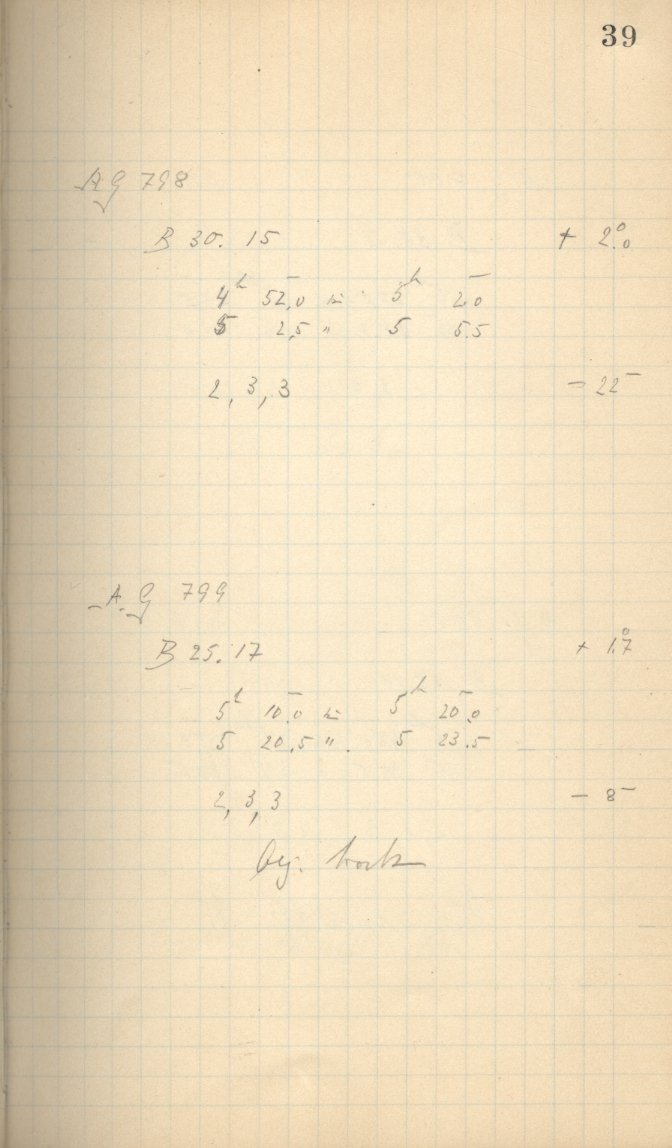 39
AG 798
B 30. 15 + 2°.0
4h 52,0 bis 5h 2,0
5 2,5 " 5 5.5
2, 3, 3 – 22–
A.G 799
B 25. 17 + 1°.7
5h 10,0 bis 5h 20,0
5 20,5 " 5 23.5
2, 3, 3 – 8–